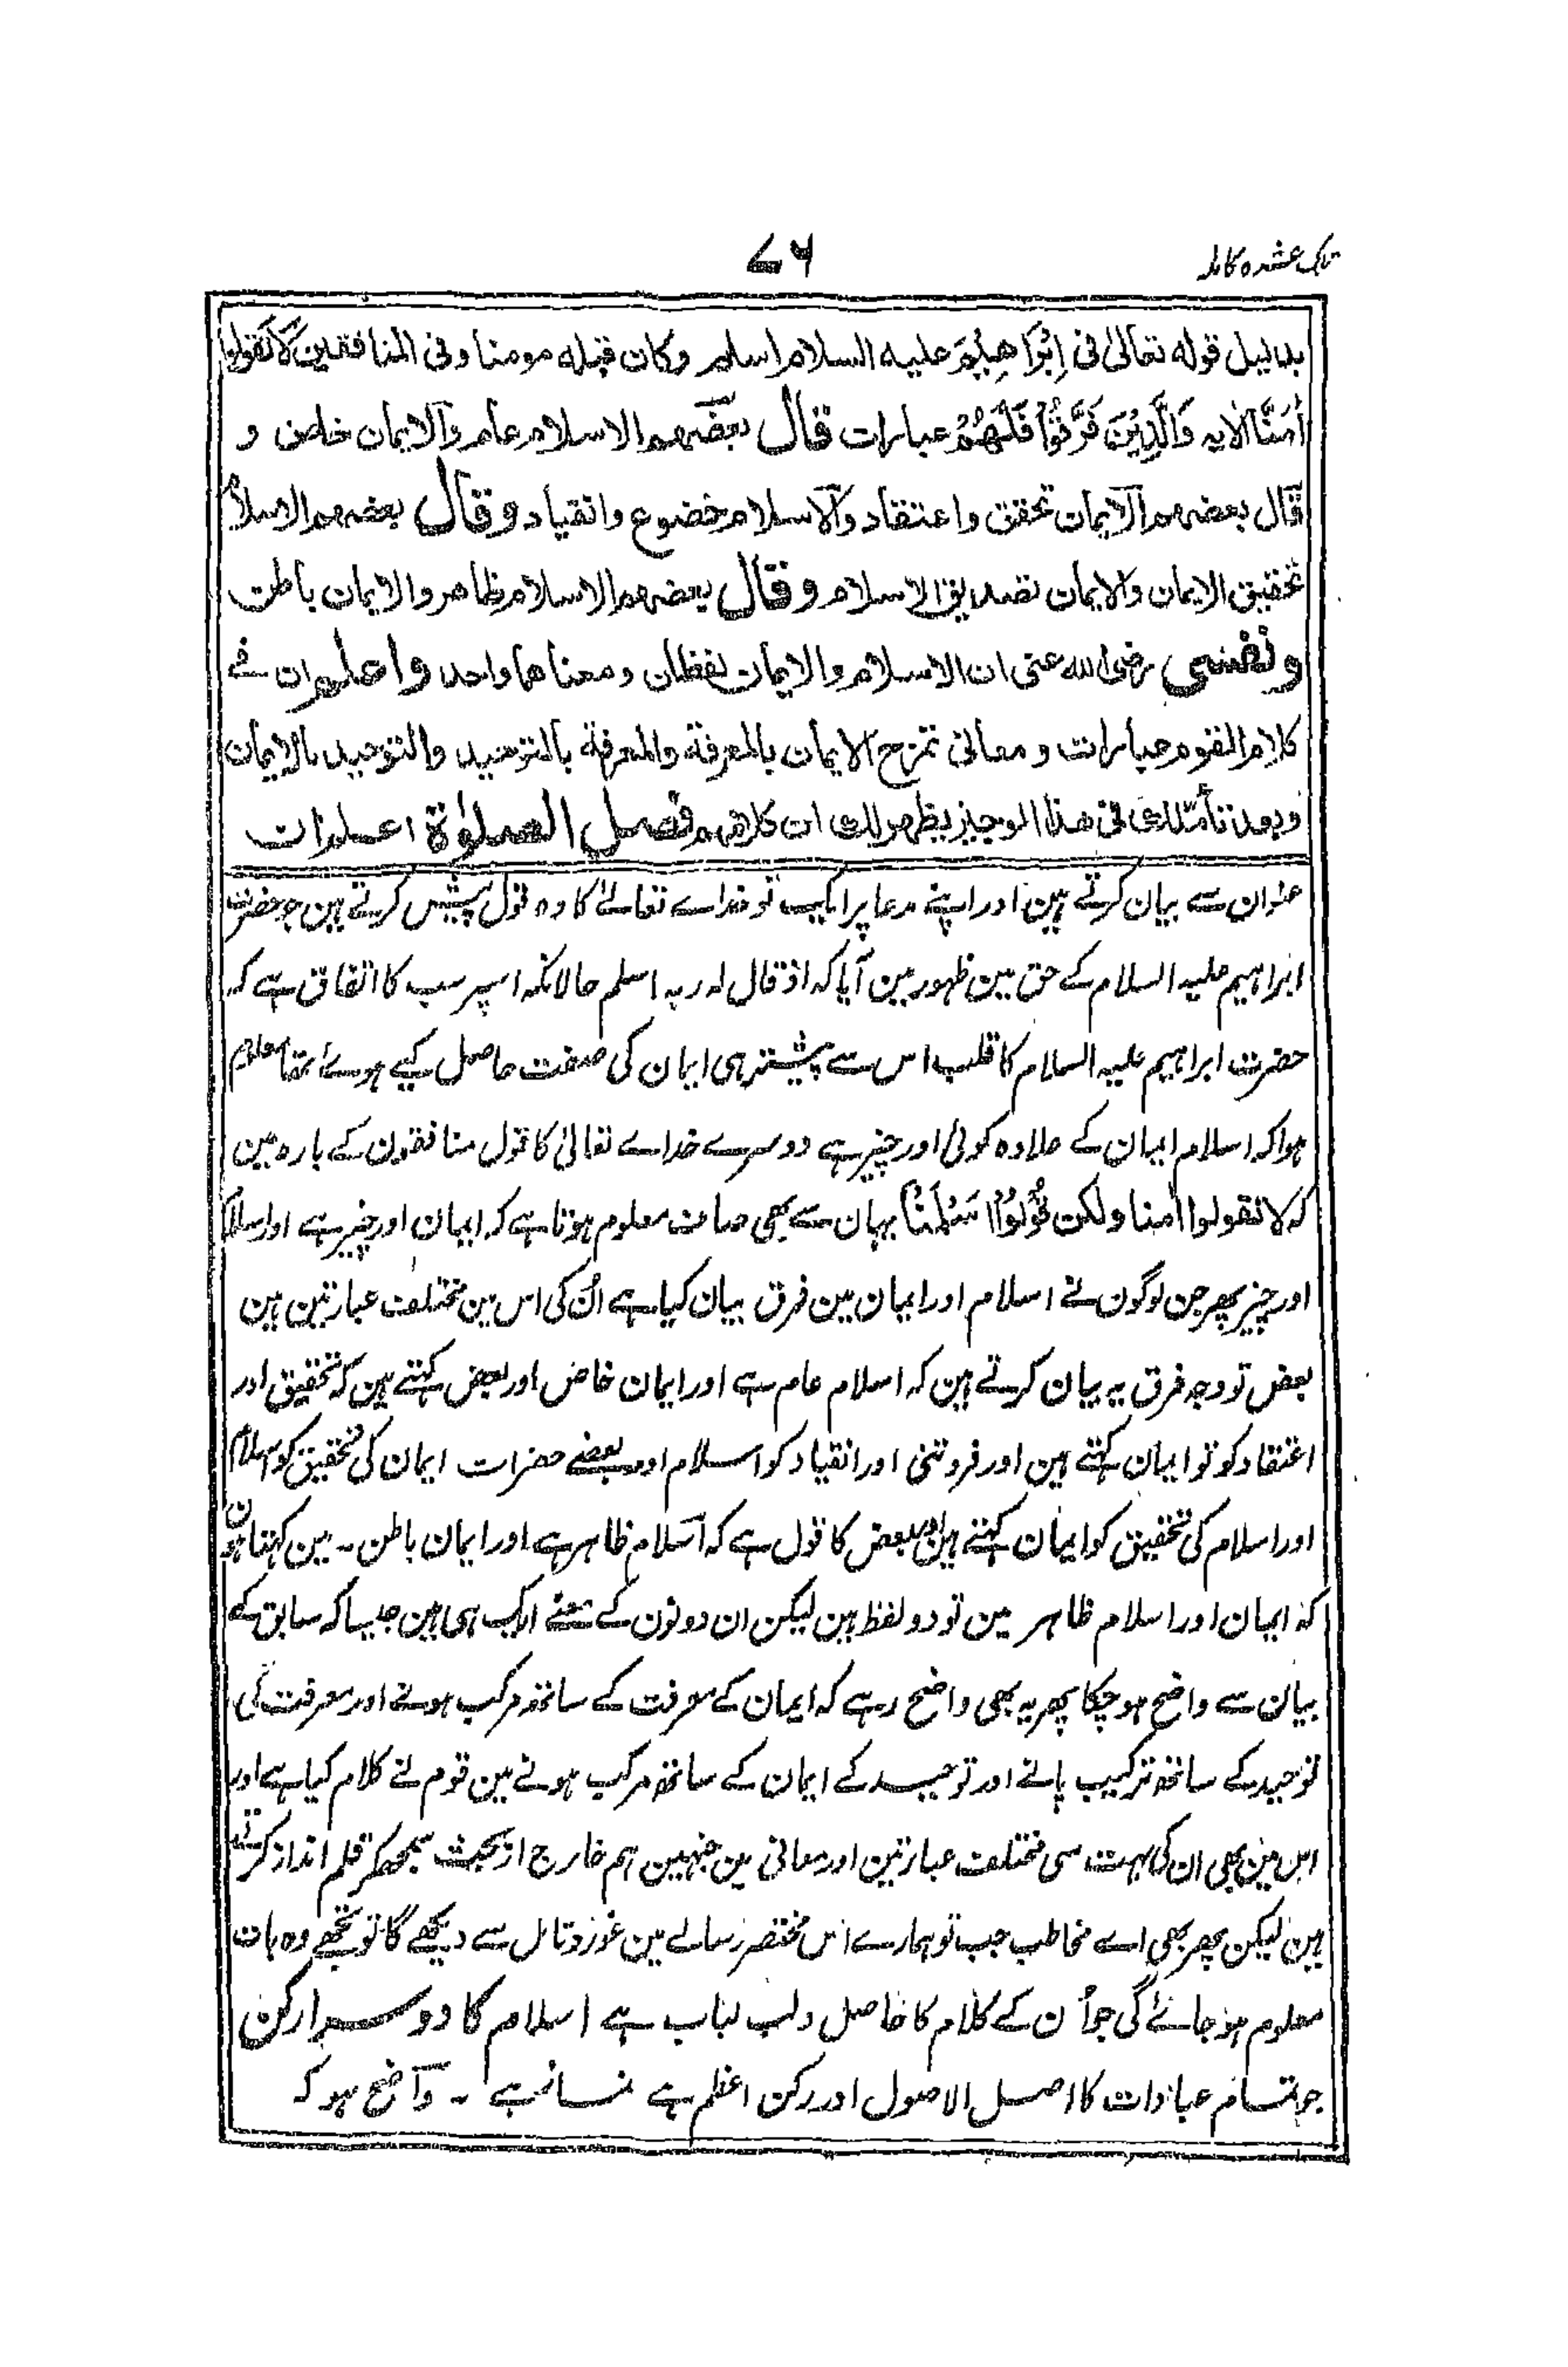 تلک عشرہ کاملہ
۷۶
بدلیل قوله تعالیٰ فی اِبْرَاهِیْمَ علیه السلام اسلم وکان قبله مومنا وفی المنافقین لَا تَقُولُوا
اٰمَنَّا الآیه وَالَّذِیْنَ فَرَّقُوْا فَلَهُمْ عبارات قال بعضهم الاسلام عام والایمان خاص و
قال بعضهم الایمان تحقق واعتقاد والاسلام خضوع وانقیاد وقال بعضهم الاسلام
تحقیق الایمان والایمان تصدیق الاسلام وقال بعضهم الاسلام ظاهر والایمان باطن
رضی الله عنی ان الاسلام والایمان لفظان ومعناهما واحد واعلم ان فے
کلام القوم عبارات ومعانی تمزج الایمان بالمعرفة والمعرفة بالتوحید والتوحید بالایمان
وبعد تأملك فی هذا الوجیز یظهر لك ان کلامهم فصل الصلوٰة اعلم ان
عنوان سے بیان کرتے ہین اور اپنے مدعا پر ایک تو خداے تعالےٰ کا وہ قول پیش کرتے ہین جو حضرت
ابراہیم علیہ السلام کے حق مین ظہور مین آیا کہ اذ قال لہ ربہ اسلم حالانکہ اسپر سب کا اتفاق ہے کہ
حضرت ابراہیم علیہ السلام کا قلب اس سے پیشتر ہی ایمان کی صفت حاصل کیے ہوئے تھا معلوم
ہوا کہ اسلام ایمان کے علاوہ کوئی اور چیز ہے دوسرے خداے تعالیٰ کا قول منافقون کے بارہ مین
کہ لا تقولوا اٰمنا ولکن قُوْلُوْا اَسْلَمْنَا یہان سے بھی صاف معلوم ہوتا ہے کہ ایمان اور چیز ہے اور اسلام
اور چیز پھر جن لوگون نے اسلام اور ایمان مین فرق بیان کیا ہے اُن کی اس مین مختلف عبارتین ہین
بعض تو وجہ فرق یہ بیان کرتے ہین کہ اسلام عام ہے اور ایمان خاص اور بعض کہتے ہین کہ تحقیق اور
اعتقاد کو تو ایمان کہتے ہین اور فروتنی اور انقیاد کو اسلام اور بعضے حضرات ایمان کی تحقیق کو اسلام
اور اسلام کی تحقیق کو ایمان کہتے ہین اور بعض کا قول ہے کہ اسلام ظاہر ہے اور ایمان باطن ۔ مین کہتا ہون
کہ ایمان اور اسلام ظاہر مین تو دو لفظ ہین لیکن ان دونون کے معنے ایک ہی ہین جیسا کہ سابق کے
بیان سے واضح ہو چکا پھر یہ بھی واضح رہے کہ ایمان کے معرفت کے ساتھ مرکب ہونے اور معرفت کی
توحید کے ساتھ ترکیب پانے اور توحید کے ایمان کے ساتھ مرکب ہونے مین قوم نے کلام کیا ہے اور
اس مین بھی ان کی بہت سی مختلف عبارتین اور معانی ہین جنہین ہم خارج از بحث سمجھکر قلم انداز کرتے
ہین لیکن پھر بھی اے مخاطب جب تو ہمارے اس مختصر رسالے مین غور و تامل سے دیکھے گا تو تجھے وہ بات
معلوم ہو جائے گی جو اُن کے کلام کا حاصل و لب لباب ہے اسلام کا دوسرا رکن
جو تمام عبادات کا اصل الاصول اور رکن اعظم ہے نماز ہے ۔ واضح ہو کہ